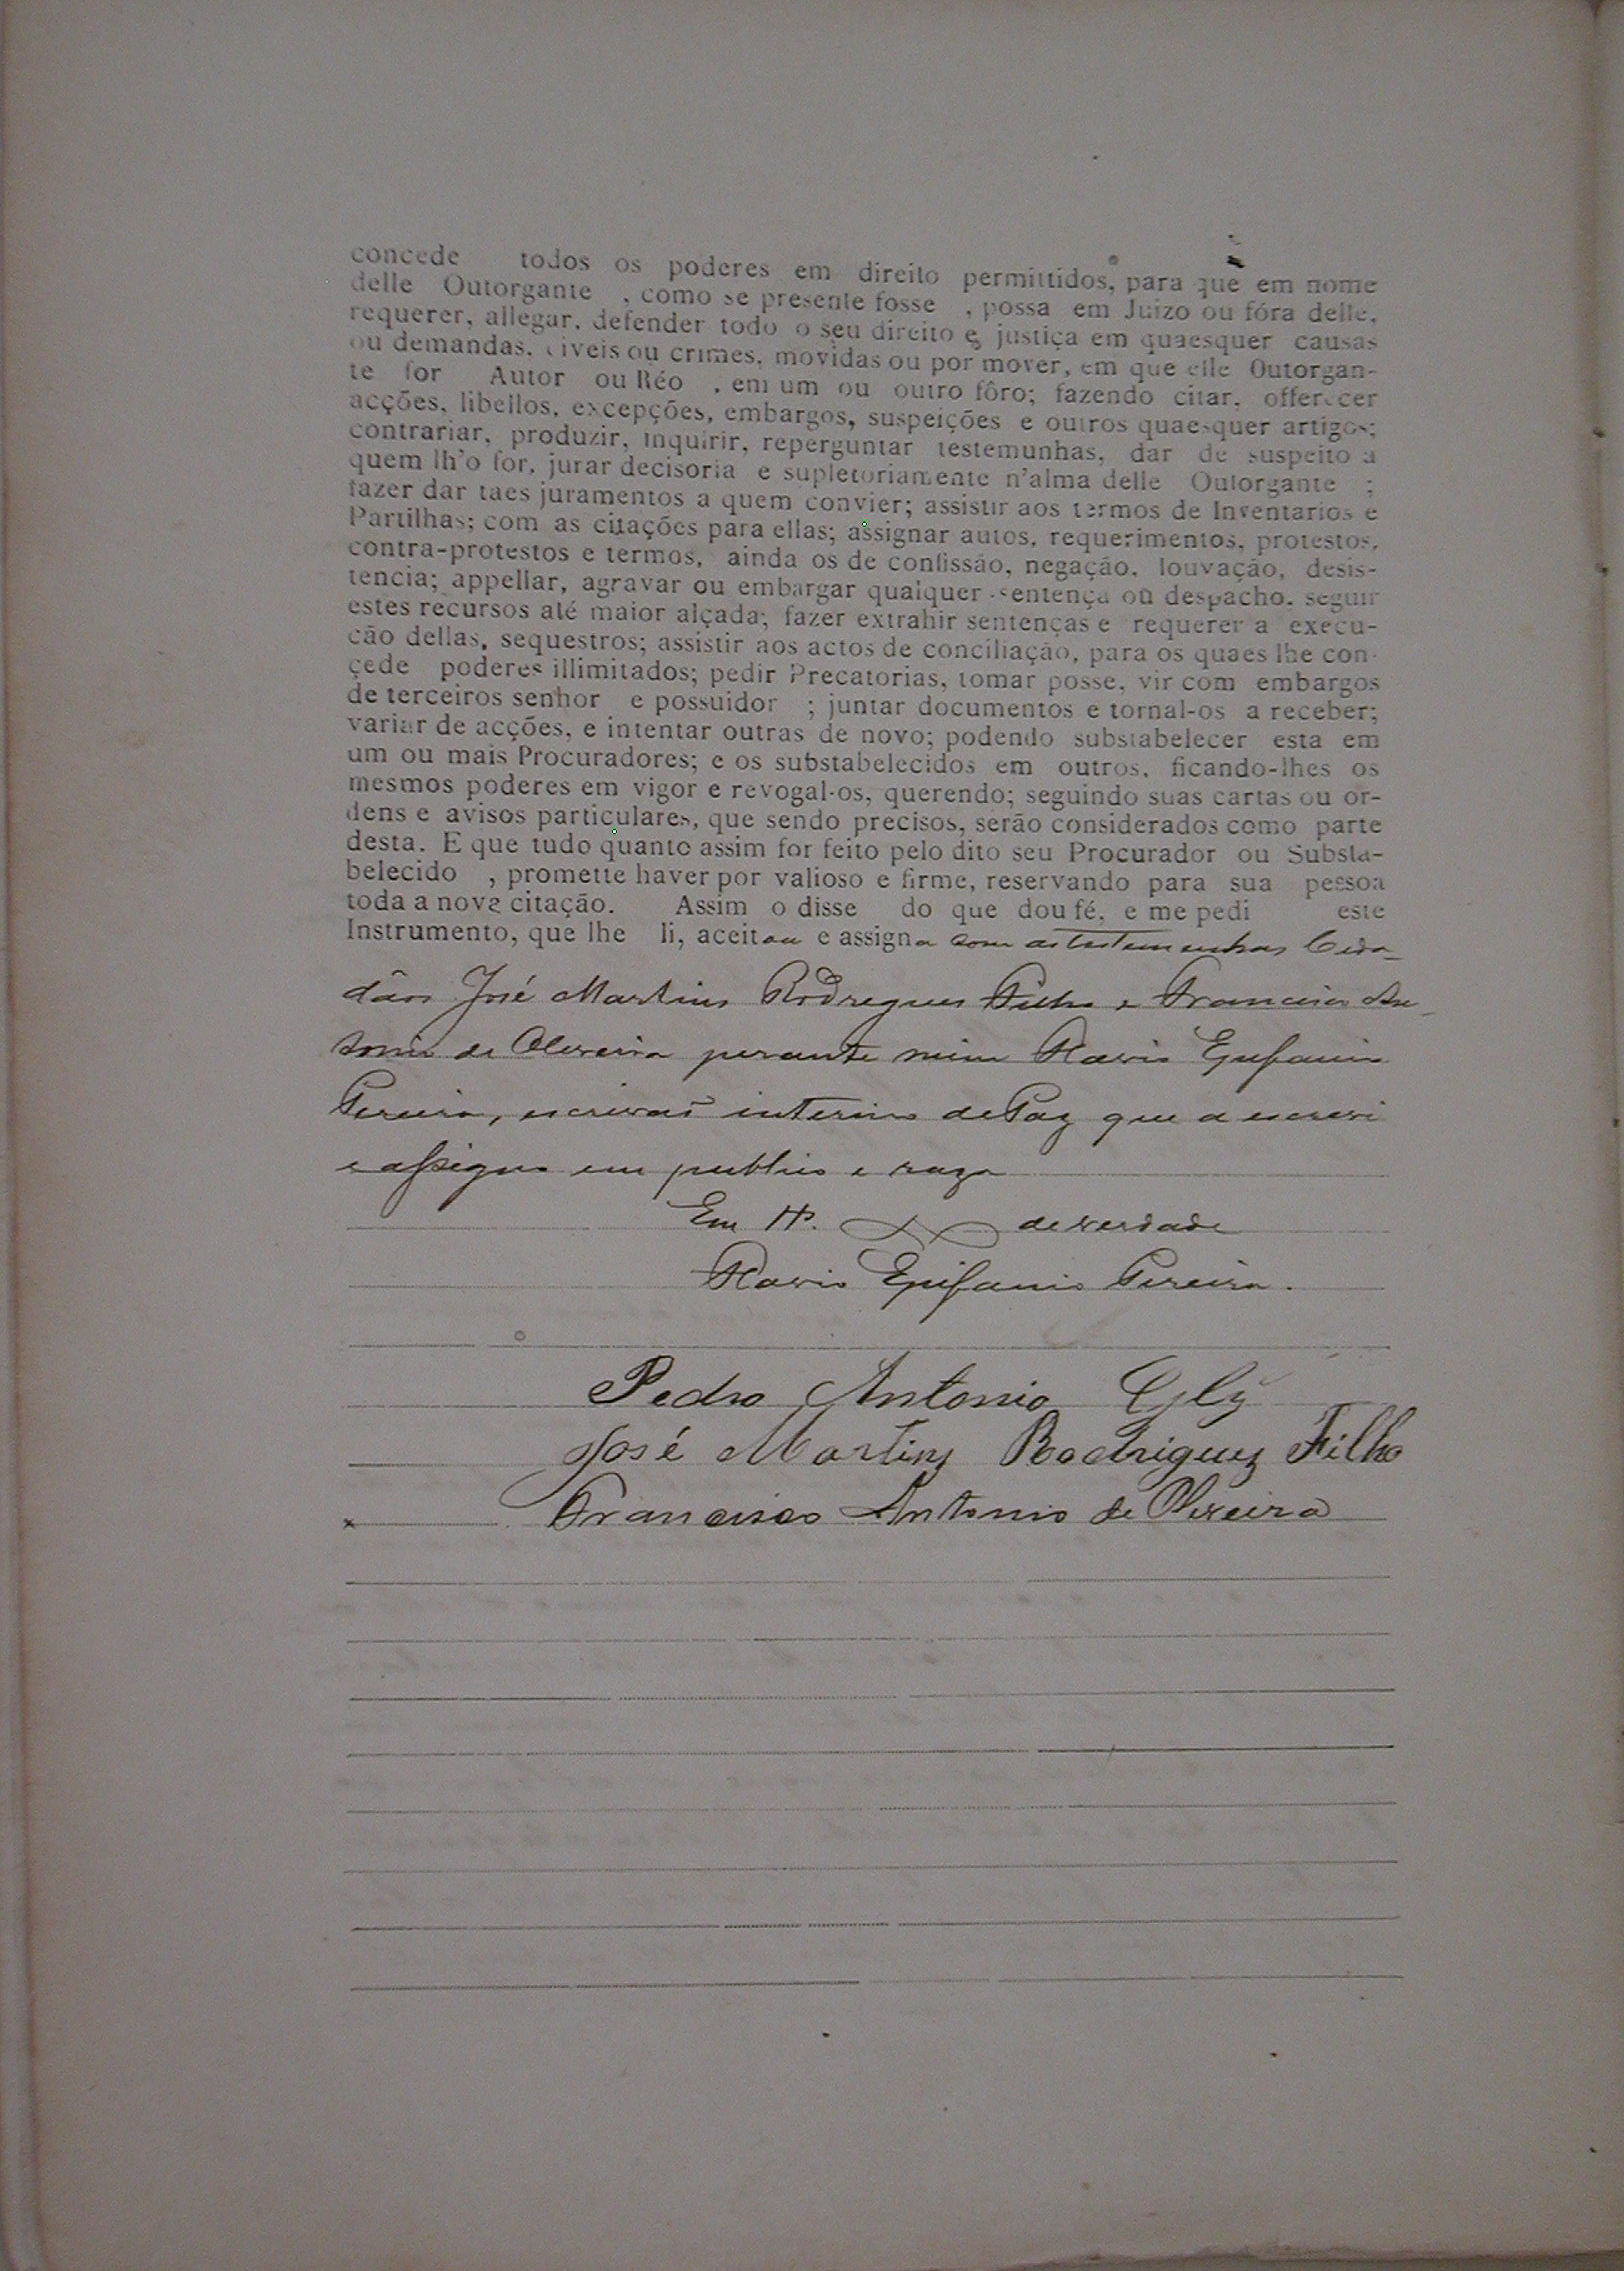 concede todos os poderes em direito permittidos, para que em nome
delle Outorgante , como se presente fosse , possa em Juizo ou fóra delle,
requerer, allegar, defender todo o seu direito e justiça em quaesquer causas
ou demandas, civeis ou crimes, movidas ou por mover, em que elle Outorgan-
te for Autor ou Réo , em um ou outro fôro; fazendo citar, offerecer
acções, libellos, excepções, embargos, suspeições e outros quaesquer artigos;
contrariar, produzir, inquirir, reperguntar testemunhas, dar de suspeito a
quem lh'o for, jurar decisoria e supletoriamente n'alma delle Outorgante ;
fazer dar taes juramentos a quem convier; assistir aos termos de Inventarios e
Partilhas; com as citações para ellas; assignar autos, requerimentos, protestos,
contra-protestos e termos, ainda os de confissão, negação, louvação, desis-
tencia; appellar, agravar ou embargar qualquer sentença ou despacho, seguir
estes recursos até maior alçada; fazer extrahir sentenças e requerer a execu-
cão dellas, sequestros; assistir aos actos de conciliação, para os quaes lhe con-
çede poderes illimitados; pedir Precatorias, tomar posse, vir com embargos
de terceiros senhor e possuidor ; juntar documentos e tornal-os a receber;
variar de acções, e intentar outras de novo; podendo substabelecer esta em
um ou mais Procuradores; e os substabelecidos em outros, ficando-lhes os
mesmos poderes em vigor e revogal-os, querendo; seguindo suas cartas ou or-
dens e avisos particulares, que sendo precisos, serão considerados como parte
desta. E que tudo quanto assim for feito pelo dito seu Procurador ou Substa-
belecido , promette haver por valioso e firme, reservando para sua pessoa
toda a nova citação. Assim o disse do que dou fé, e me pedi este
Instrumento, que lhe li, aceitou e assigna com as testemunhas Cida-
dãos José Martins Rodrigues Filho e Francisco An-
tonio de Oliveira perante mim Flavio Epifanio
Pereira, escrivaõ interino de Paz que a escrevi
e assigno em publico e razo
Em tº. de verdade
Flavio Epifanio Pereira.
Pedro Antonio
José Martins Rodrigues Filho
Francisco Antonio de Oliveira